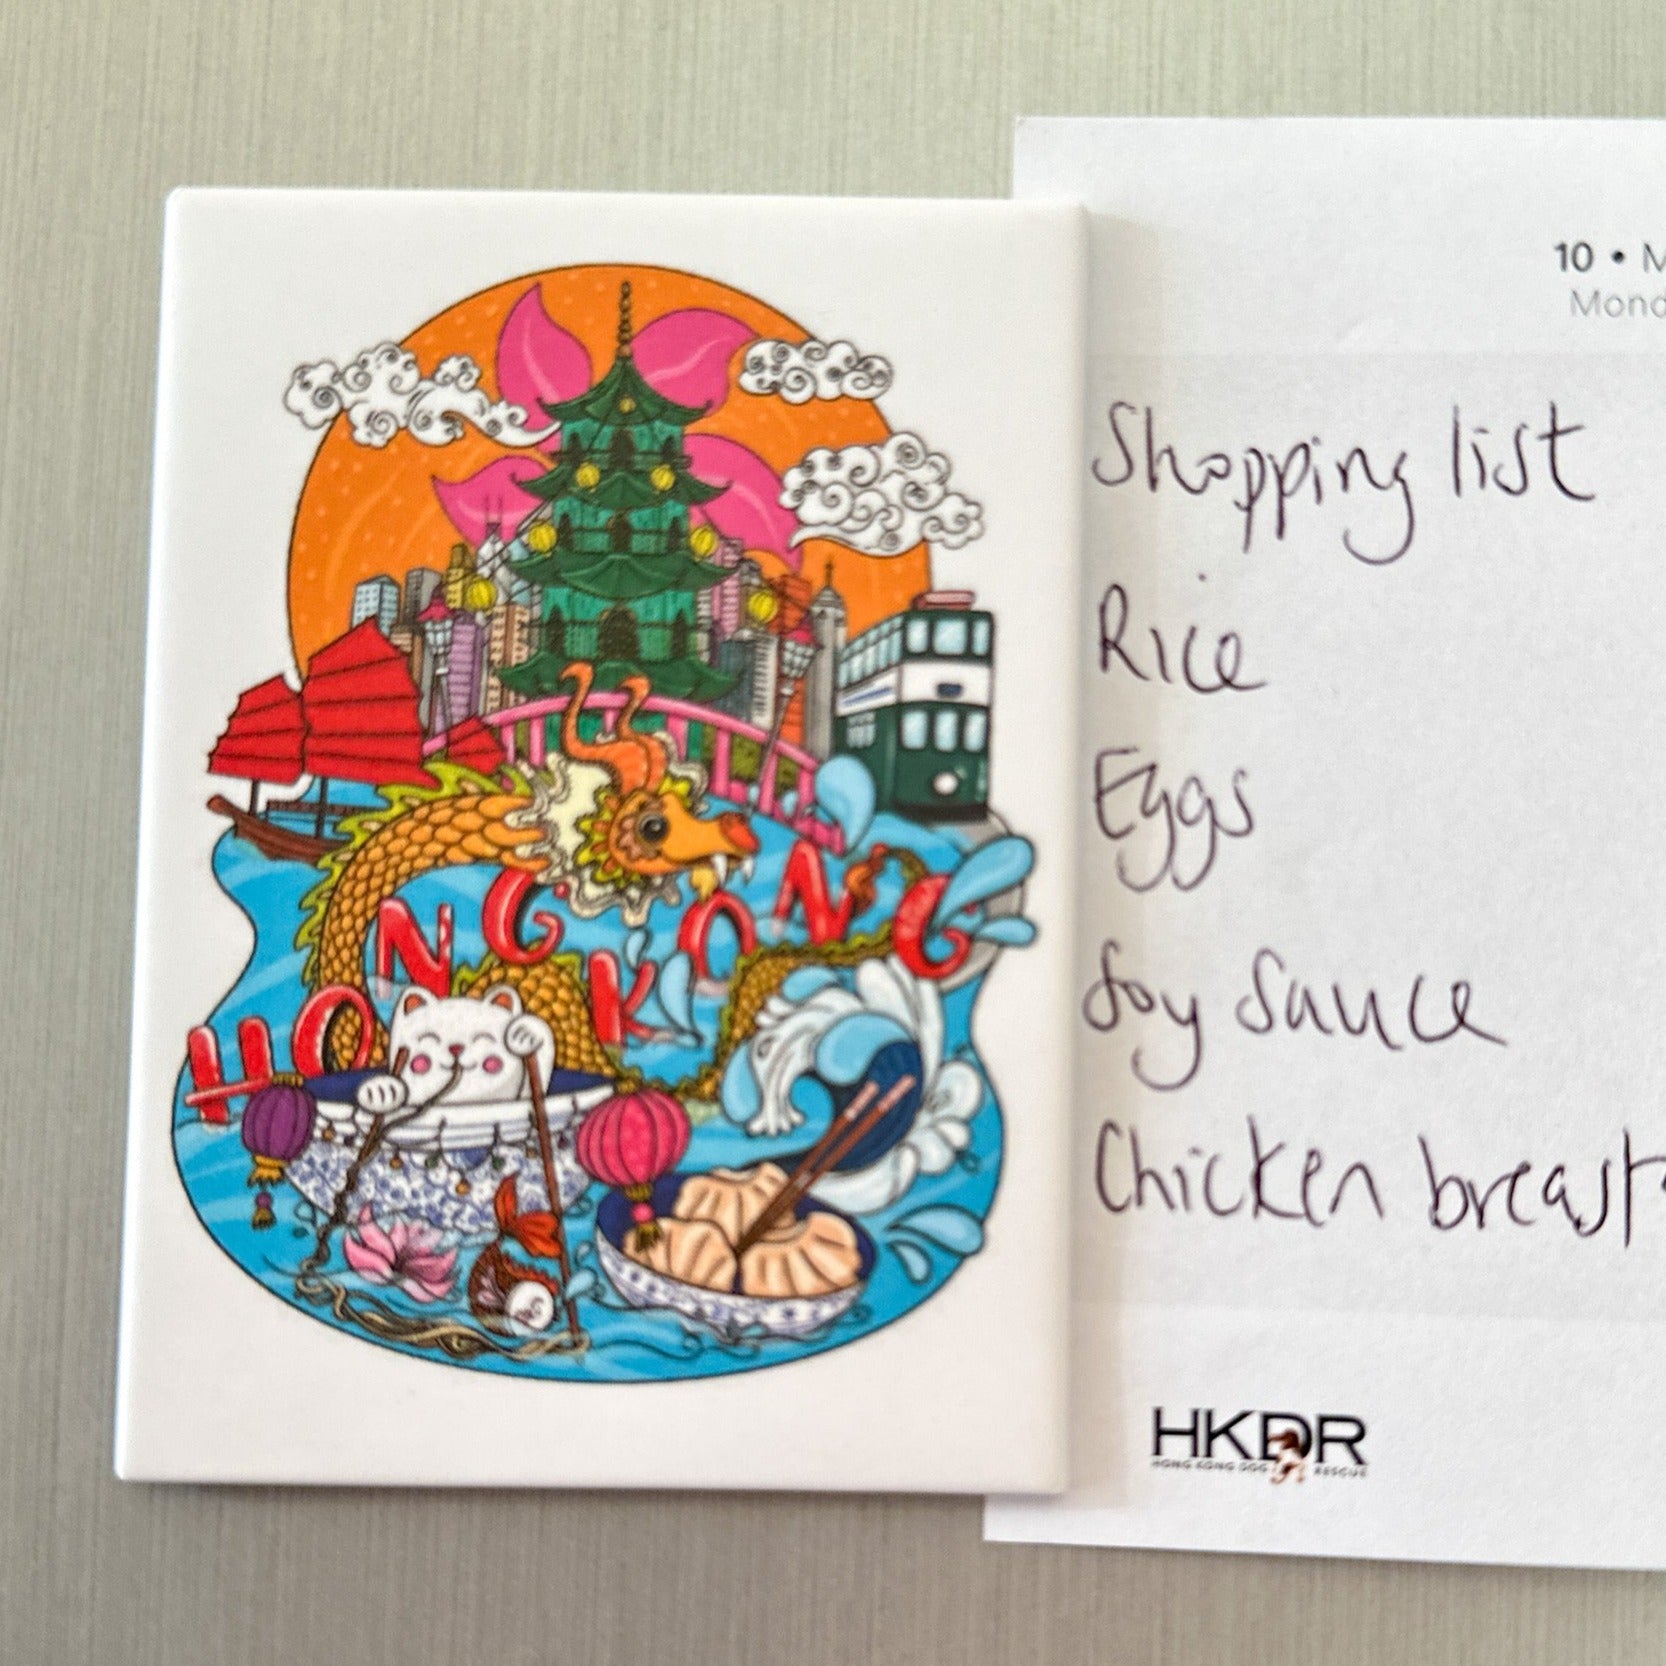 HONG KONG
10 • M
Mond
Shopping list
Rice
Eggs
Soy Sauce
Chicken breast
HKDR
HONG KONG DOG RESCUE